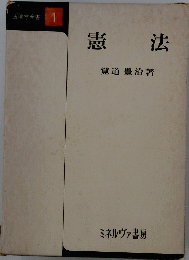 1
憲法
覚道豊治著
ミネルヴァ書房